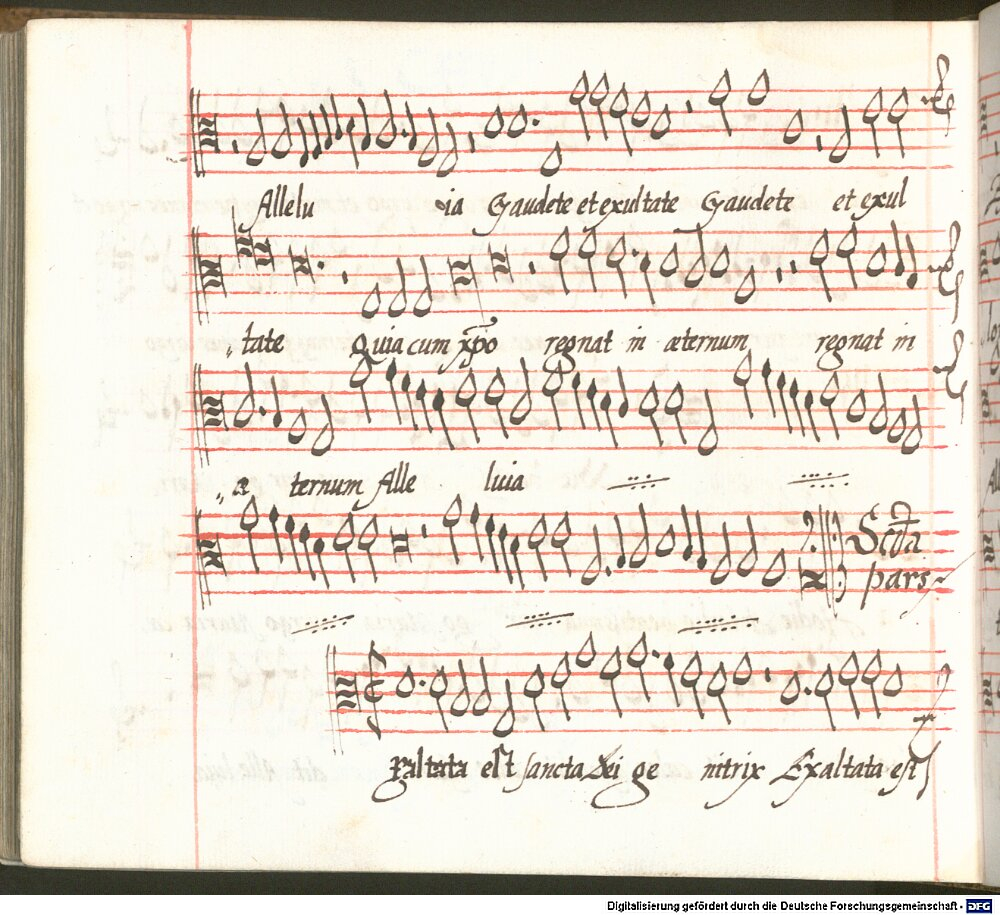 Allelu ia Gaudete et exultate Gaudete et exul
tate Quia cum xpo regnat in æternum regnat in
æ ternum Alle luia
Scda
pars
Exaltata est sancta Dei ge nitrix Exaltata est
Digitalisierung gefördert durch die Deutsche Forschungsgemeinschaft - DFG